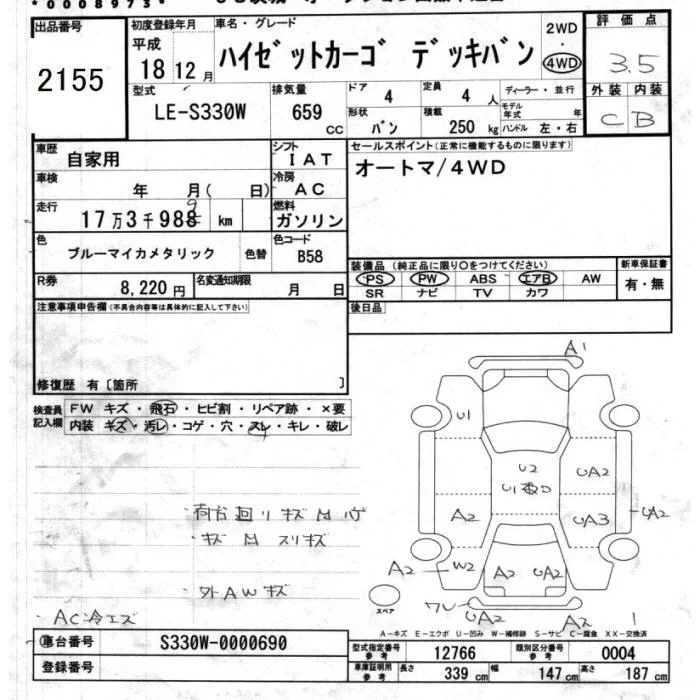 *0008973*
出品番号
2155
初度登録年月
平成
18 12 月
車名・グレード
ハイゼットカーゴ デッキバン
2WD
・
4WD
評価点
3.5
外装 内装
C B
型式
LE-S330W
排気量
659
CC
ドア
4
定員
4 人
ディーラー・並行
モデル年式 年
形状
バン
積載
250 kg
ハンドル 左・右
車歴
自家用
シフト
IAT
車検
年 月( 日)
冷房
AC
走行
17万3千988 km
燃料
ガソリン
色
ブルーマイカメタリック
色替
色コード
B58
R券
8,220 円
名変通知期限
月 日
セールスポイント(正常に機能するものに限ります)
オートマ/4WD
装備品(純正品に限り○をつけてください)
PS PW ABS エアB AW
SR ナビ TV カワ
新車保証書
有・無
後日品
注意事項申告欄(不具合内容等は具体的に記入して下さい)
修復歴 有〔箇所 〕
検査員
記入欄
FW キズ・飛石・ヒビ割・リペア跡・×要
内装 キズ・汚レ・コゲ・穴・スレ・キレ・破レ
・荷台回リキズ
・キズ M スリキズ
・外AWキズ
・AC冷エズ
A1
U1
U2
UA2
A2
UA3
UA2
A2
W2
A2
UA2
ワレ
UA2
A2
スペア
A-キズ E-エクボ U-凹み W-補修跡 S-サビ C-腐食 XX-交換済
車台番号
S330W-0000690
登録番号
型式指定番号
参考
12766
類別区分番号
参考
0004
車庫証明用
参考
長さ 339 cm
幅 147 cm
高さ 187 cm